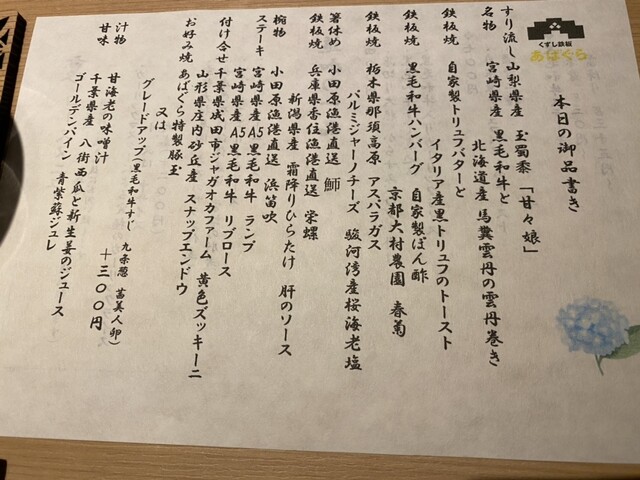 くずし鉄板
あばぐら
本日の御品書き
すり流し 山梨県産 玉蜀黍 「甘々娘」
名物 宮崎県産 黒毛和牛と
北海道産 馬糞雲丹の雲丹巻き
鉄板焼 自家製トリュフバターと
イタリア産黒トリュフのトースト
鉄板焼 黒毛和牛ハンバーグ 自家製ぽん酢
京都大村農園 春菊
鉄板焼 栃木県那須高原 アスパラガス
パルミジャーノチーズ 駿河湾産桜海老塩
箸休め 小田原漁港直送 鰤
鉄板焼 兵庫県香住漁港直送 栄螺
新潟県産 霜降りひらたけ 肝のソース
椀物 小田原漁港直送 浜笛吹
ステーキ 宮崎県産A5黒毛和牛 ランプ
宮崎県産A5黒毛和牛 リブロース
付け合せ 千葉県成田市ジャガオカファーム 黄色ズッキーニ
山形県庄内砂丘産 スナップエンドウ
お好み焼 あばぐら特製豚玉
又は
グレードアップ(黒毛和牛すじ 九条葱 茜美人卵)
+三〇〇円
汁物 甘海老の味噌汁
甘味 千葉県産 八街西瓜と新生姜のジュース
ゴールデンパイン 青紫蘇ジュレ